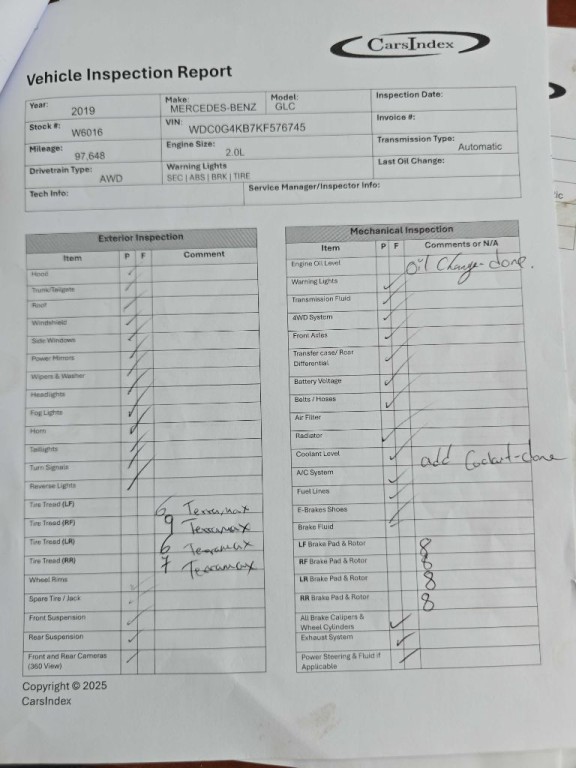 CarsIndex
Vehicle Inspection Report
Year: 2019 Make: MERCEDES-BENZ Model: GLC Inspection Date:
Stock #: W6016 VIN: WDC0G4KB7KF576745 Invoice #:
Mileage: 97,648 Engine Size: 2.0L Transmission Type: Automatic
Drivetrain Type: AWD Warning Lights SEC | ABS | BRK | TIRE Last Oil Change:
Tech Info: Service Manager/Inspector Info:
Exterior Inspection
Item P F Comment
Hood ✓
Trunk/Tailgate ✓
Roof ✓
Windshield ✓
Side Windows ✓
Power Mirrors ✓
Wipers & Washer ✓
Headlights ✓
Fog Lights ✓
Horn ✓
Taillights ✓
Turn Signals ✓
Reverse Lights ✓
Tire Tread (LF) 6 Terramax
Tire Tread (RF) 9 Terramax
Tire Tread (LR) 6 Terramax
Tire Tread (RR) 7 Terramax
Wheel Rims ✓
Spare Tire / Jack ✓
Front Suspension ✓
Rear Suspension ✓
Front and Rear Cameras ✓
(360 View)
Mechanical Inspection
Item P F Comments or N/A
Engine Oil Level Oil Change-done.
Warning Lights ✓
Transmission Fluid ✓
4WD System ✓
Front Axles ✓
Transfer case/ Rear ✓
Differential
Battery Voltage ✓
Belts / Hoses ✓
Air Filter
Radiator ✓
Coolant Level ✓ add Coolant-done
A/C System ✓
Fuel Lines ✓
E-Brakes Shoes ✓
Brake Fluid ✓
LF Brake Pad & Rotor 8
RF Brake Pad & Rotor 8
LR Brake Pad & Rotor 8
RR Brake Pad & Rotor 8
All Brake Calipers & ✓
Wheel Cylinders
Exhaust System ✓
Power Steering & Fluid if ✓
Applicable
Copyright © 2025
CarsIndex